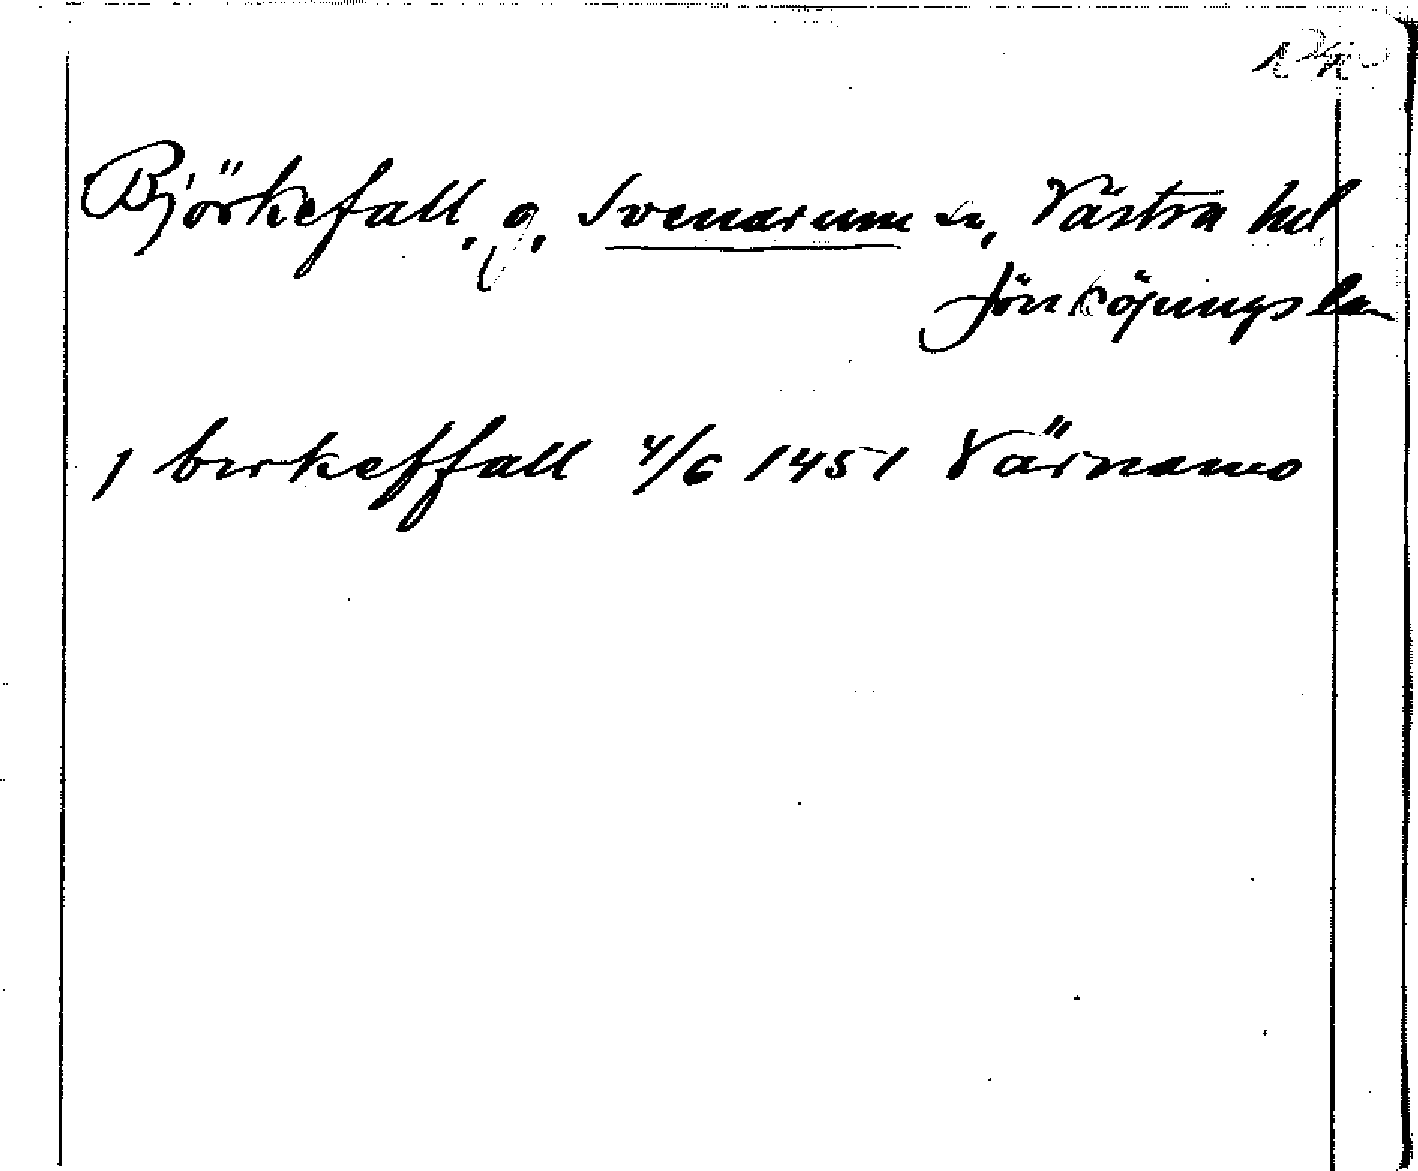 Björkefall, g. Svenarum sn, Västra hd
Jönköpings län
j birkeffall 4/6 1451 Värnamo